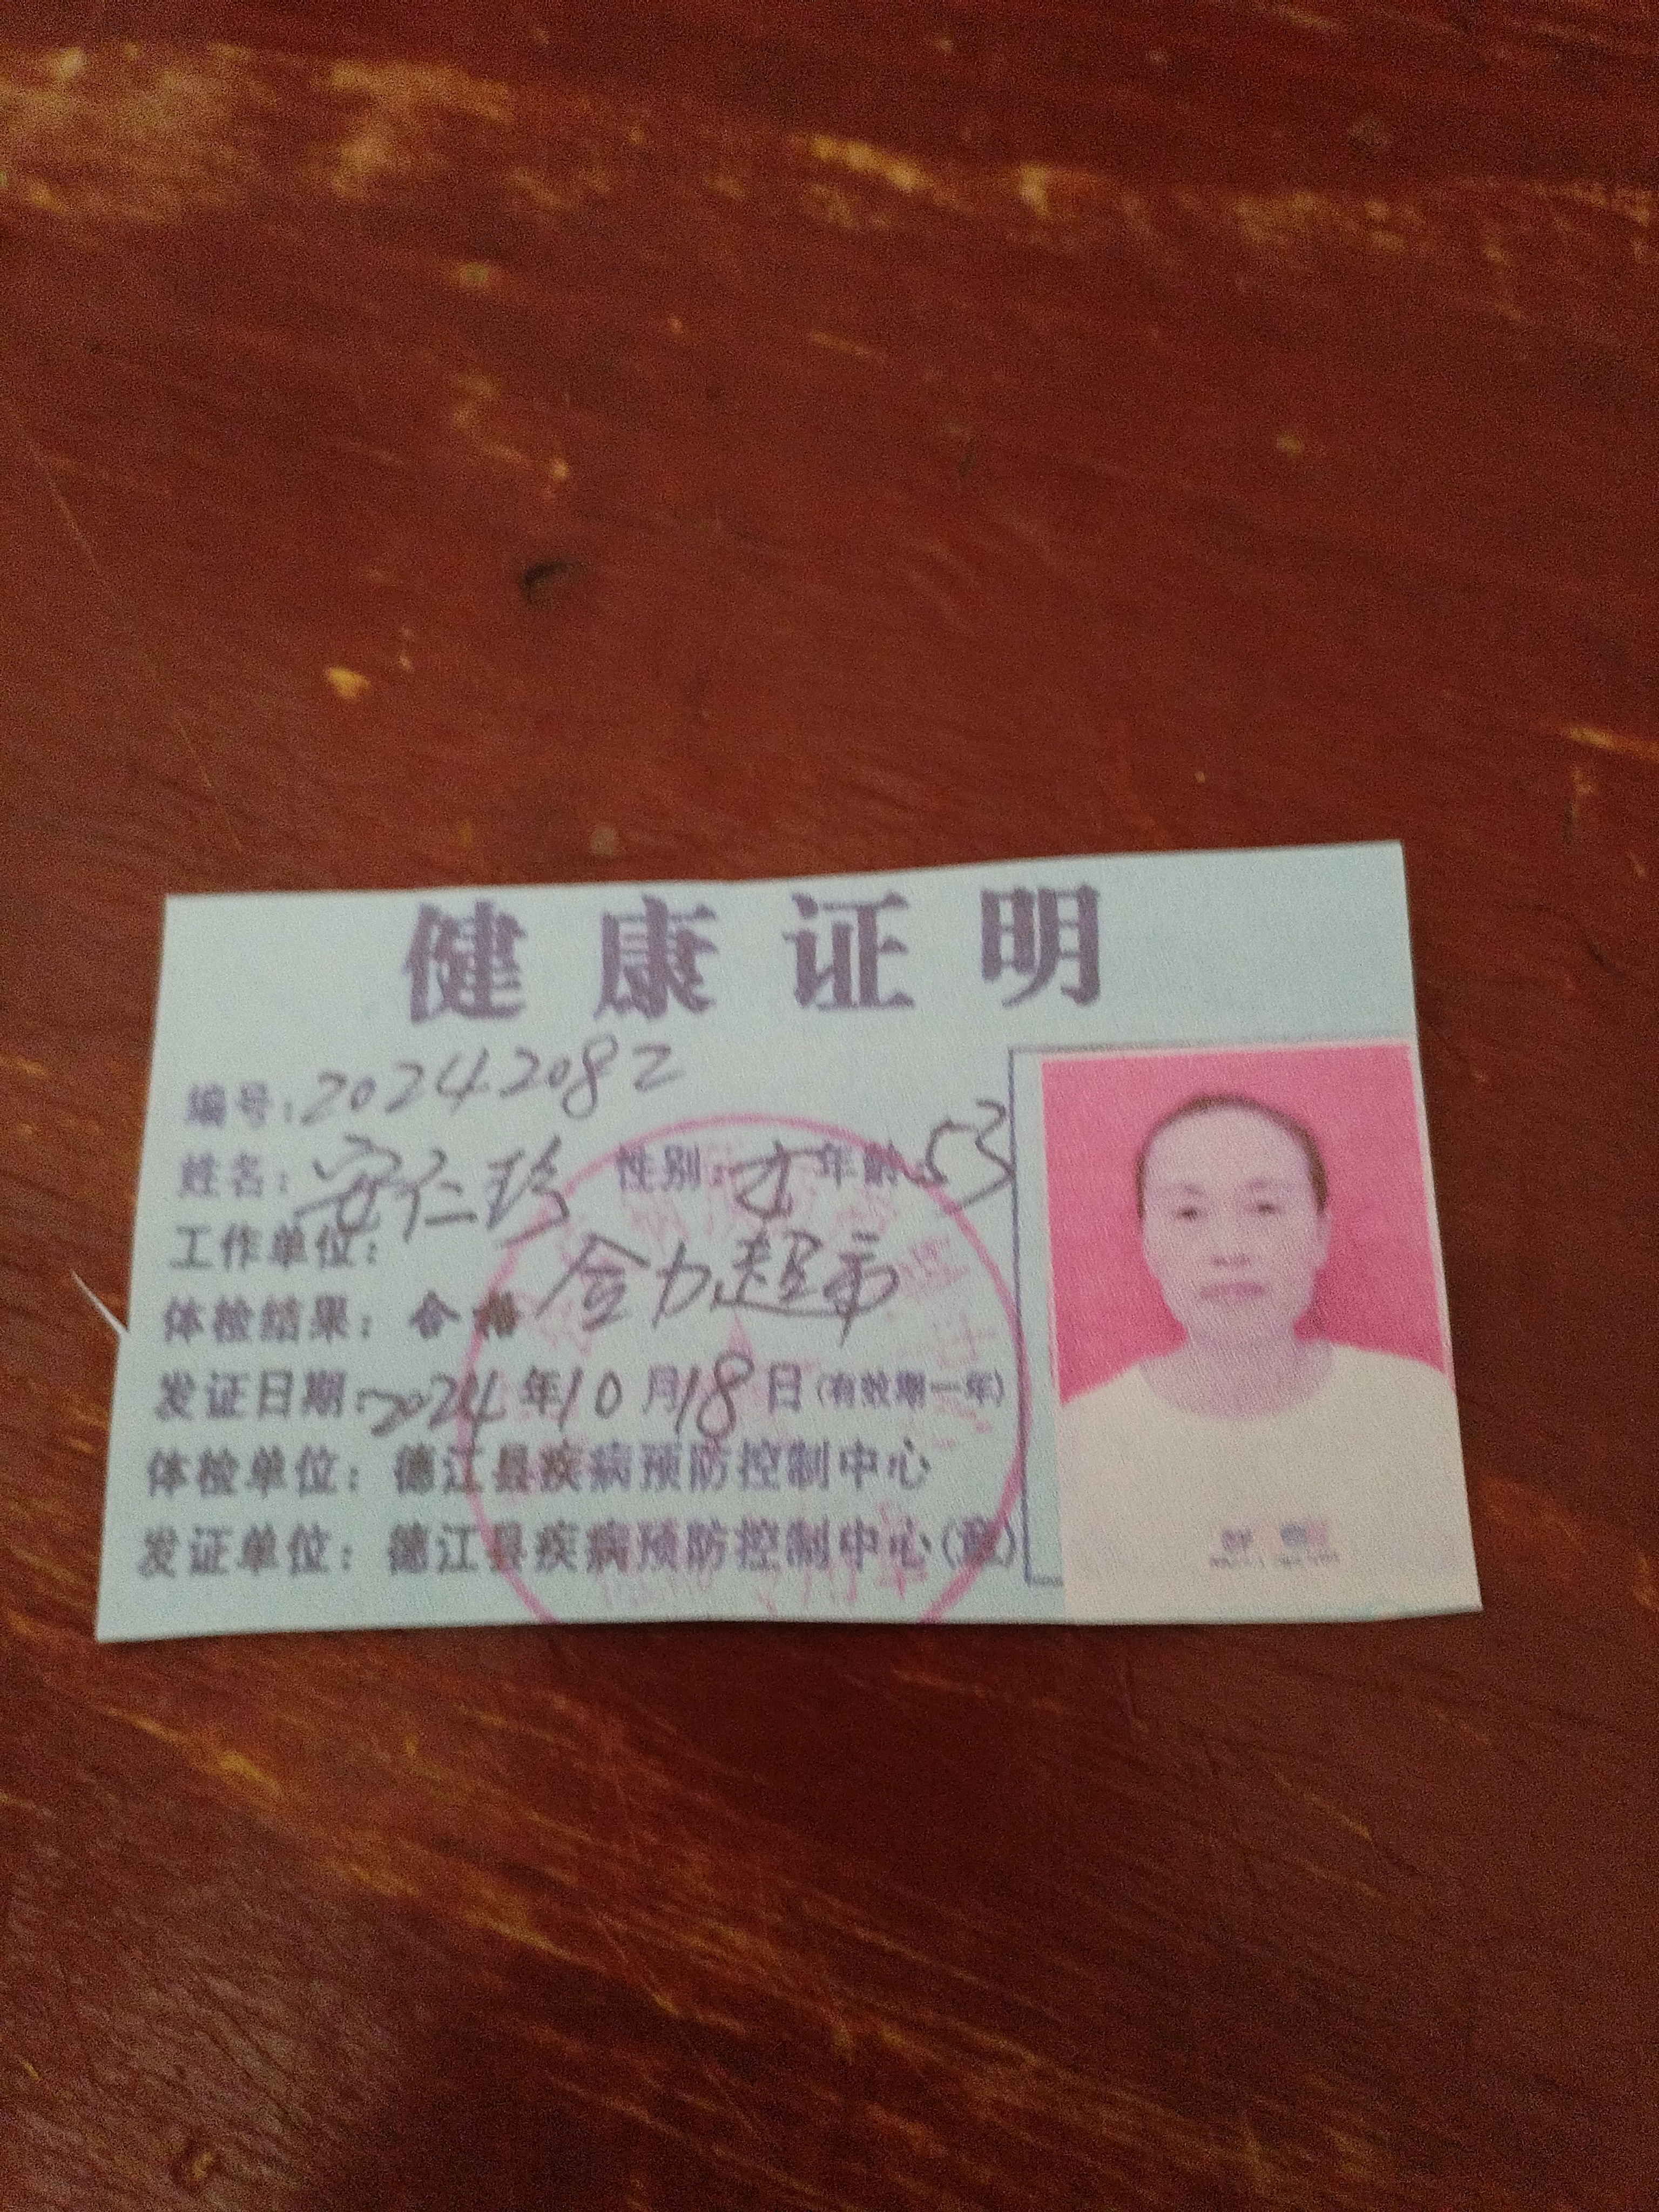 健康证明
编号:20242082
姓名:安仁珍 性别:女 年龄:53
工作单位: 合力超市
体检结果:合格
发证日期:2024年10月18日(有效期一年)
体检单位:德江县疾病预防控制中心
发证单位:德江县疾病预防控制中心(章)